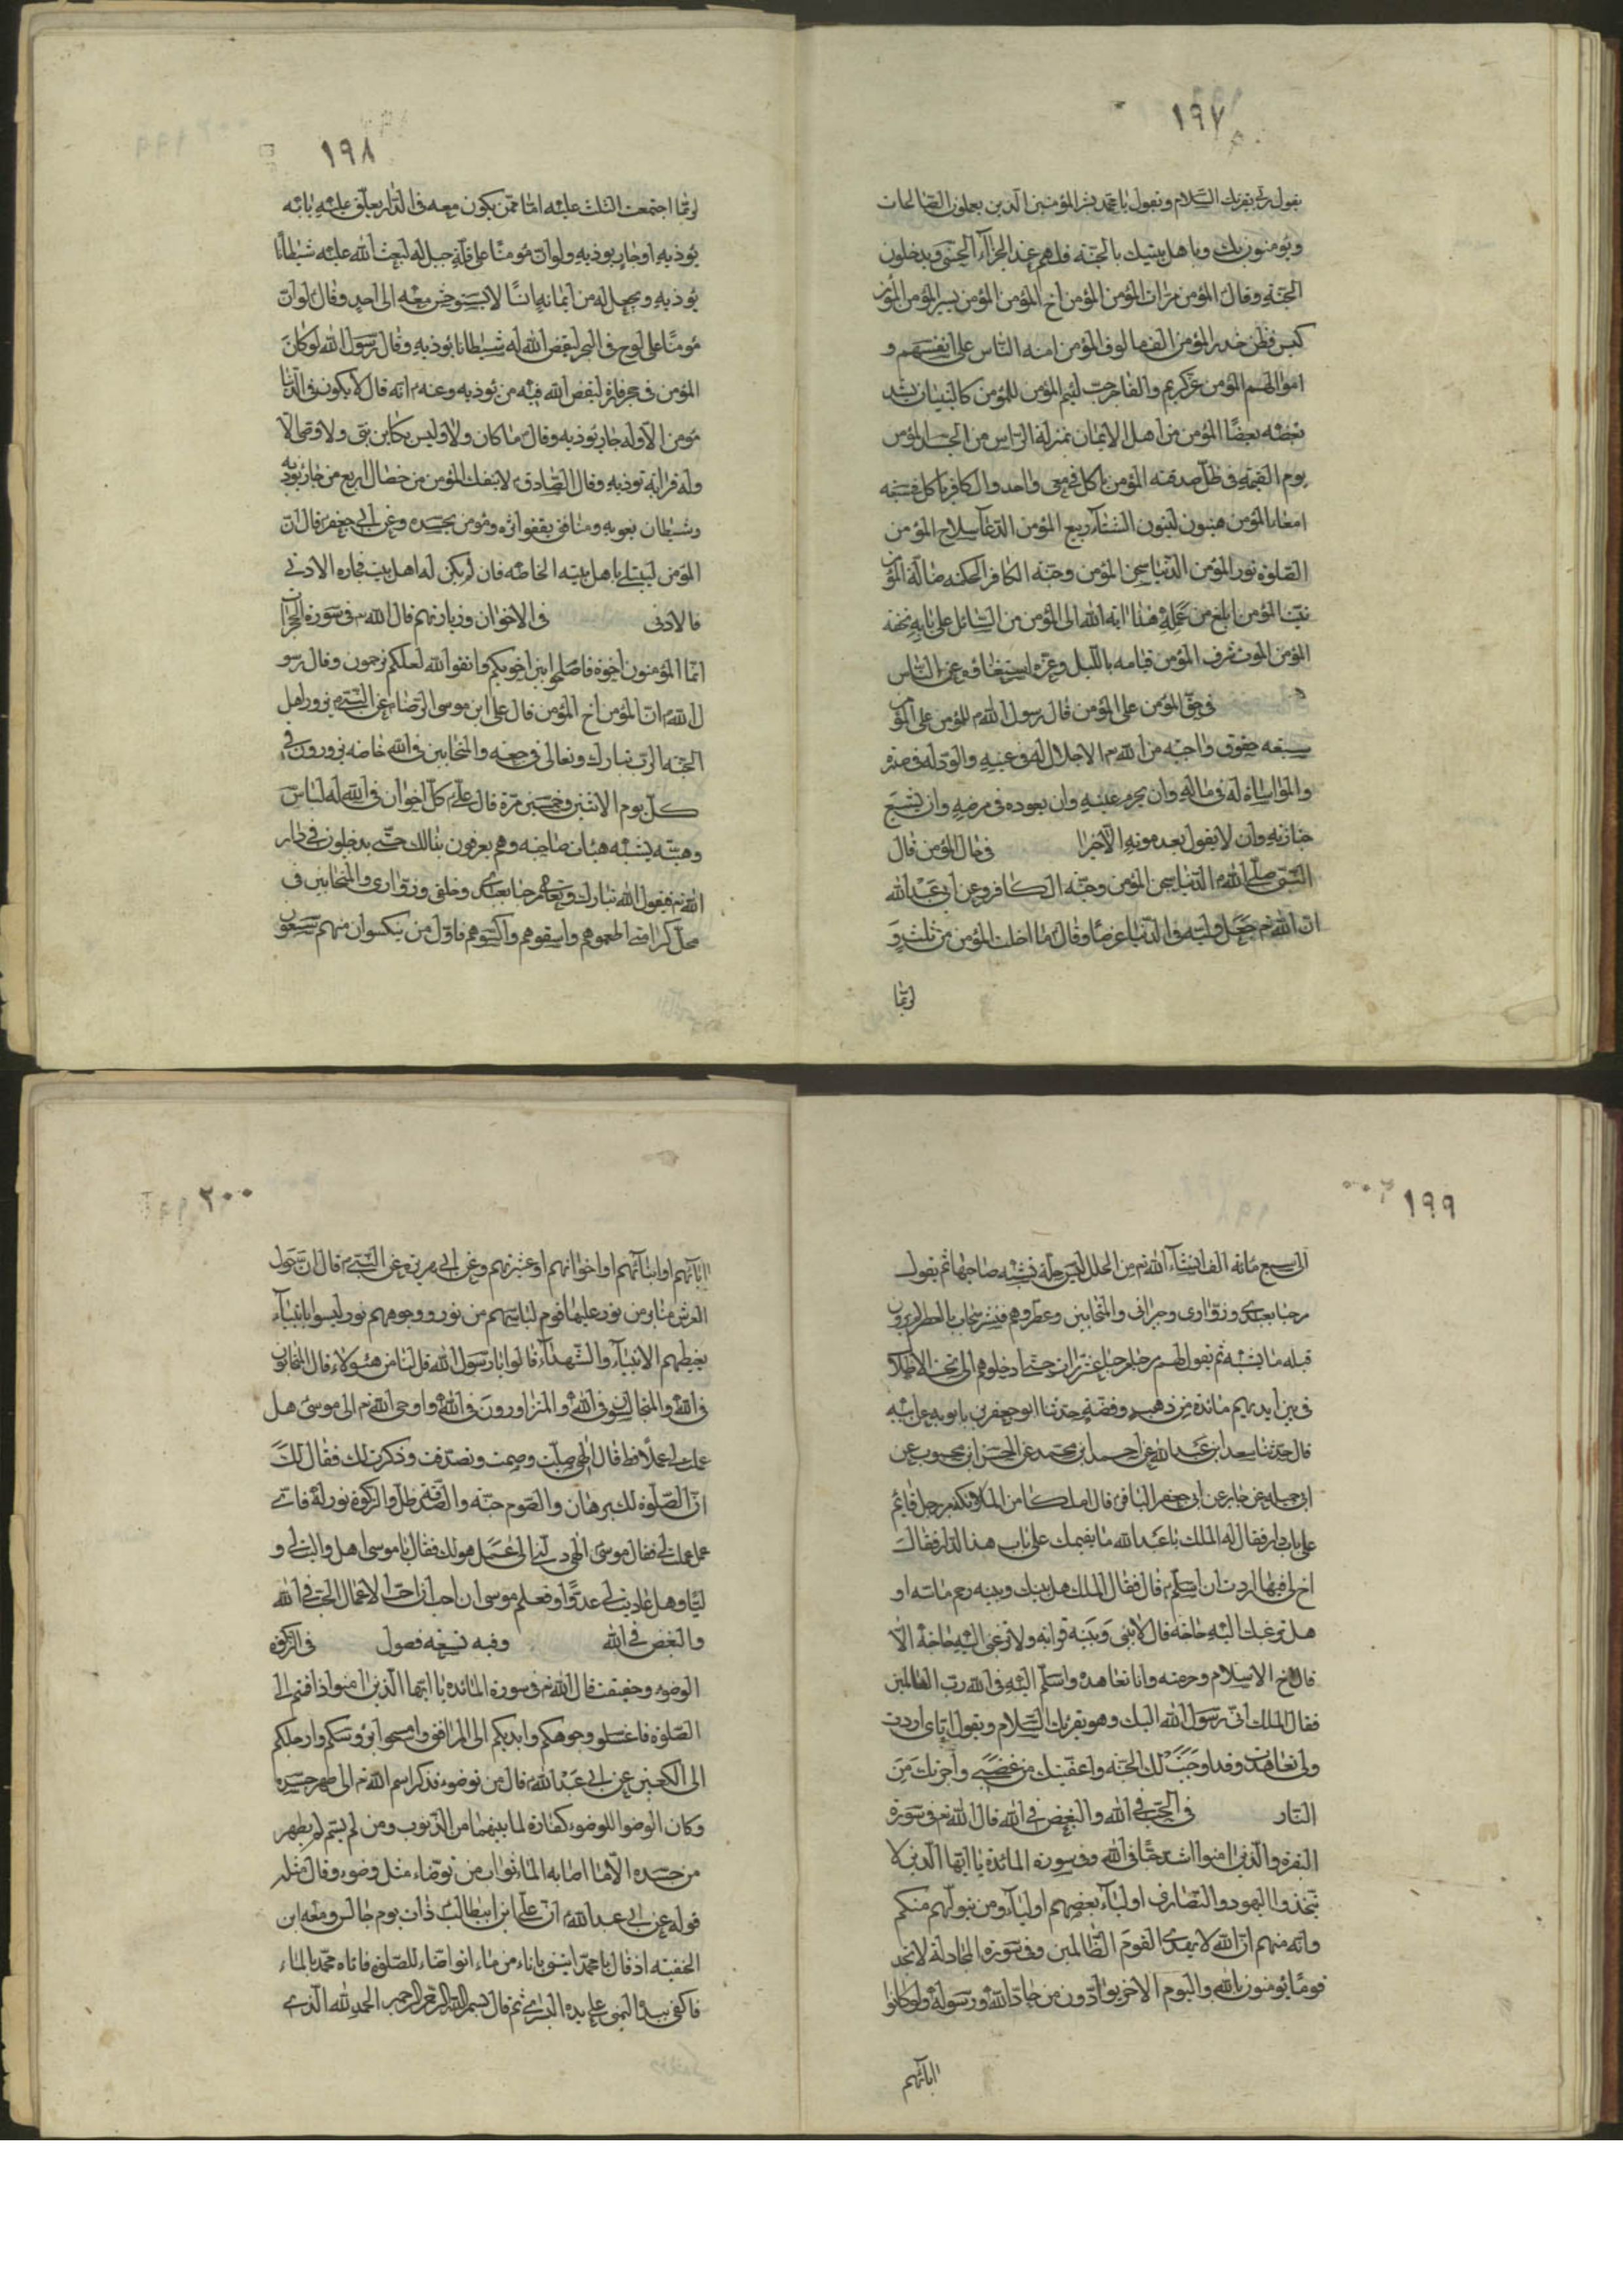 ١٩٧
يقول ربك يقرئك السلام ويقول يا محمد بشر المؤمنين الذين يعملون الصالحات
ويؤمنون بك وباهل بيتك بالجنة فلهم عند الجزآء الحسنى ويدخلون
الجنة وقال المؤمن مرات المؤمن المؤمن اخ المؤمن المؤمن يسير المؤنة المؤمن
كيس فطن حذر المؤمن الف مالوف المؤمن امنه الناس على انفسهم و
اموالهم المؤمن غر كريم والفاجر خب لئيم المؤمن للمؤمن كالبنيان يشد
بعضه بعضا المؤمن من اهل الايمان بمنزلة الراس من الجسد المؤمن
يوم القيمة في ظل صدقته المؤمن ياكل في معى واحد والكافر ياكل في سبعه
امعاء المؤمن هينون لينون الشتآء ربيع المؤمن الدعآء سلاح المؤمن
الصلوة نور المؤمن الدنيا سجن المؤمن وجنة الكافر الحكمه ضالة المؤمن
نية المؤمن ابلغ من عمله هدايا الله الى المؤمن من السائل على بابه تحفه
المؤمن الموت شرف المؤمن قيامه بالليل وعزه استغناؤه عن الناس
في حق المؤمن على المؤمن قال رسول الله للمؤمن على المؤمن
سبعه حقوق واجبه من الله الاجلال له في عينه والود له في صدره
والمواساة له في ماله وان يحرم غيبته وان يعوده في مرضه وان يشيع
جنازته وان لا يقول بعد موته الا خيرا في حال المؤمن قال
النبي صلى الله الدنيا سجن المؤمن وجنة الكافر وعن ابي عبد الله
ان الله جعل وليه في الدنيا غرضا وقال ما افلت المؤمن من ثلث و
لربما
١٩٨
لربما اجتمعت الثلث عليه اما ممن يكون معه في الدار يغلق عليه بابه
يؤذيه او جار يؤذيه ولو ان مؤمنا على قلة جبل له لبعث الله عليه شيطانا
يؤذيه ويجعل له من ايمانه انسا لا يستوحش معه الى احد وقال لو ان
مؤمنا على لوح في البحر لقيض الله له شيطانا يؤذيه وقال رسول الله لو كان
المؤمن في جحر فارة لقيض الله فيه من يؤذيه وعنه انه قال لا يكون في الدنيا
مؤمن الا وله جار يؤذيه وقال ما كان ولا وليس بكاين نبى ولا وصى الا
وله قرابة تؤذيه وقال الصادق لا ينفك المؤمن من خصال اربع من جار يؤذيه
وشيطان يغويه ومنافق يقفوا اثره ومؤمن يحسده وعن ابي جعفر قال ان
المؤمن ليبتلى باهل بيته الخاصه فان لم يكن له اهل بيت فجاره الادنى
فالادنى في الاخوان وزيارتهم قال الله في سورة الحجرات
انما المؤمنون اخوة فاصلحوا بين اخويكم واتقوا الله لعلكم ترحمون وقال رسو
ل الله ان المؤمن اخ المؤمن قال على ابن موسى الرضا عن النبي يزور اهل
الجنة الرب تبارك وتعالى في جمعه والمتحابين في الله خاصه يزورون في
كل يوم الاثنين وخمسين مرة قال على كل اخوان في الله له لباس
وهيئه يشبه هيئات صاحبه وهم يعرفون بذالك حتى يدخلون في دار
الله فيقول الله تبارك وتعالى مرحبا بعبادى وخلقي وزوارى والمتحابين في
محل كرامتى اطعموهم واسقوهم واكسوهم فاول من يكسوان منهم سبعون
١٩٩
الى سبع مائه الف ايشآء الله من الحلل ليس حلة تشبه صاحبها ثم يقول
مرحبا بعبادى وزوارى وجيرانى والمتحابين وعطروهم فينشر سحاب بالعطر لم يرون
قبله ما يشبه ثم يقول لهم مرحبا مرحبا عشر مرات حتى ادخلوهم الى تحت الاظلال
في بين ايديهم مائدة من ذهب وفضة حدثنا ابو جعفر بن بابويه على ابيه
قال حدثنا سعد ابن عبد الله عن احمد ابن محمد عن الحسن ابن محبوب عن
ابن جميله عن جابر عن ابي جعفر الباقر قال ان ملكا من الملائكة مر برجل قايم
على باب دار فقال له الملك يا عبد الله ما يقيمك على باب هذا الدار فقال
اخ لى فيها اردت ان اسلم قال فقال الملك هل بينك وبينه رحم ماسه او
هل ترغبك اليه حاجة قال لا بينى وبينه قرابه ولا ترغبنى اليه حاجة الا
قال اخ الاسلام وحرمته وانا تعاهده واسلم اليه في الله رب العالمين
فقال الملك انى رسول الله اليك وهو يقرئك السلام ويقول اياى اردت
ولى تعاهدت وقد اوجبت لك الجنة واعفيتك من غضبى واجرتك من
النار في الحب في الله والبغض في الله قال الله في سورة
البقرة والذين امنوا اشد حبا في الله وفي سورة المائدة يا ايها الذين لا
تتخذوا اليهود والنصارى اولياء بعضهم اولياء ومن يتولهم منكم
وانه منهم ان الله لا يهدى القوم الظالمين وفي سورة المجادلة لا تجد
قوما يؤمنون بالله واليوم الاخر يوآدون من حاد الله ورسوله ولو كانوا
ابآئهم
٢٠٠
ابآئهم او ابنآئهم او اخوانهم او عشيرتهم وعن ابي هريره عن النبي قال ان حول
العرش منابر من نور عليها قوم لباسهم من نور ووجوههم نور ليسوا بانبيآء
يغبطهم الانبيآء والشهدآء قالوا يا رسول الله قل لنا من هئولاء قال المتحابون
في الله والمتجالسون في الله والمتزاورون في الله واوحى الله الى موسى هل
عملت لى عملا قط قال الهى صليت وصمت وتصدقت وذكرت لك فقال لك
ان الصلوة لك برهان والصوم جنة والصدقة ظل والزكوة نور له فاى
عمل عملت لى فقال موسى الهى دلنى الى عمل هو لك فقال يا موسى اهل واليت لى و
ليا وهل عاديت لى عدوا فعلم موسى ان احب ان احب الاعمال الحب في الله
والبغض في الله وفيه تسعه فصول في الزكوة
الوضوء وحقيقت قال الله في سورة المائده يا ايها الذين امنوا اذا قمتم الى
الصلوة فاغسلو وجوهكم وايديكم الى المرافق وامسحوا برؤسكم وارجلكم
الى الكعبين عن ابي عبد الله قال من توضوء فذكر اسم الله الى طهر جسده
وكان الوضوء اللوضوء كفارة لما بينهما من الذنوب ومن لم يسم لم يطهر
من جسده الا ما اصابه الماء ثواب من توضاء مثل وضوء وقال مثله
قوله عن ابي عبد الله ان عليا ابن ابيطالب ذات يوم جالس ومعه ابن
الحنفيه اذ قال يا محمد ايتنى باناء من ماء اتوضاء للصلوة فاتاه محمد بالماء
فاكفى بيده اليمنى على يده اليسرى ثم قال بسم الله الرحمن الرحيم الحمد لله الذى